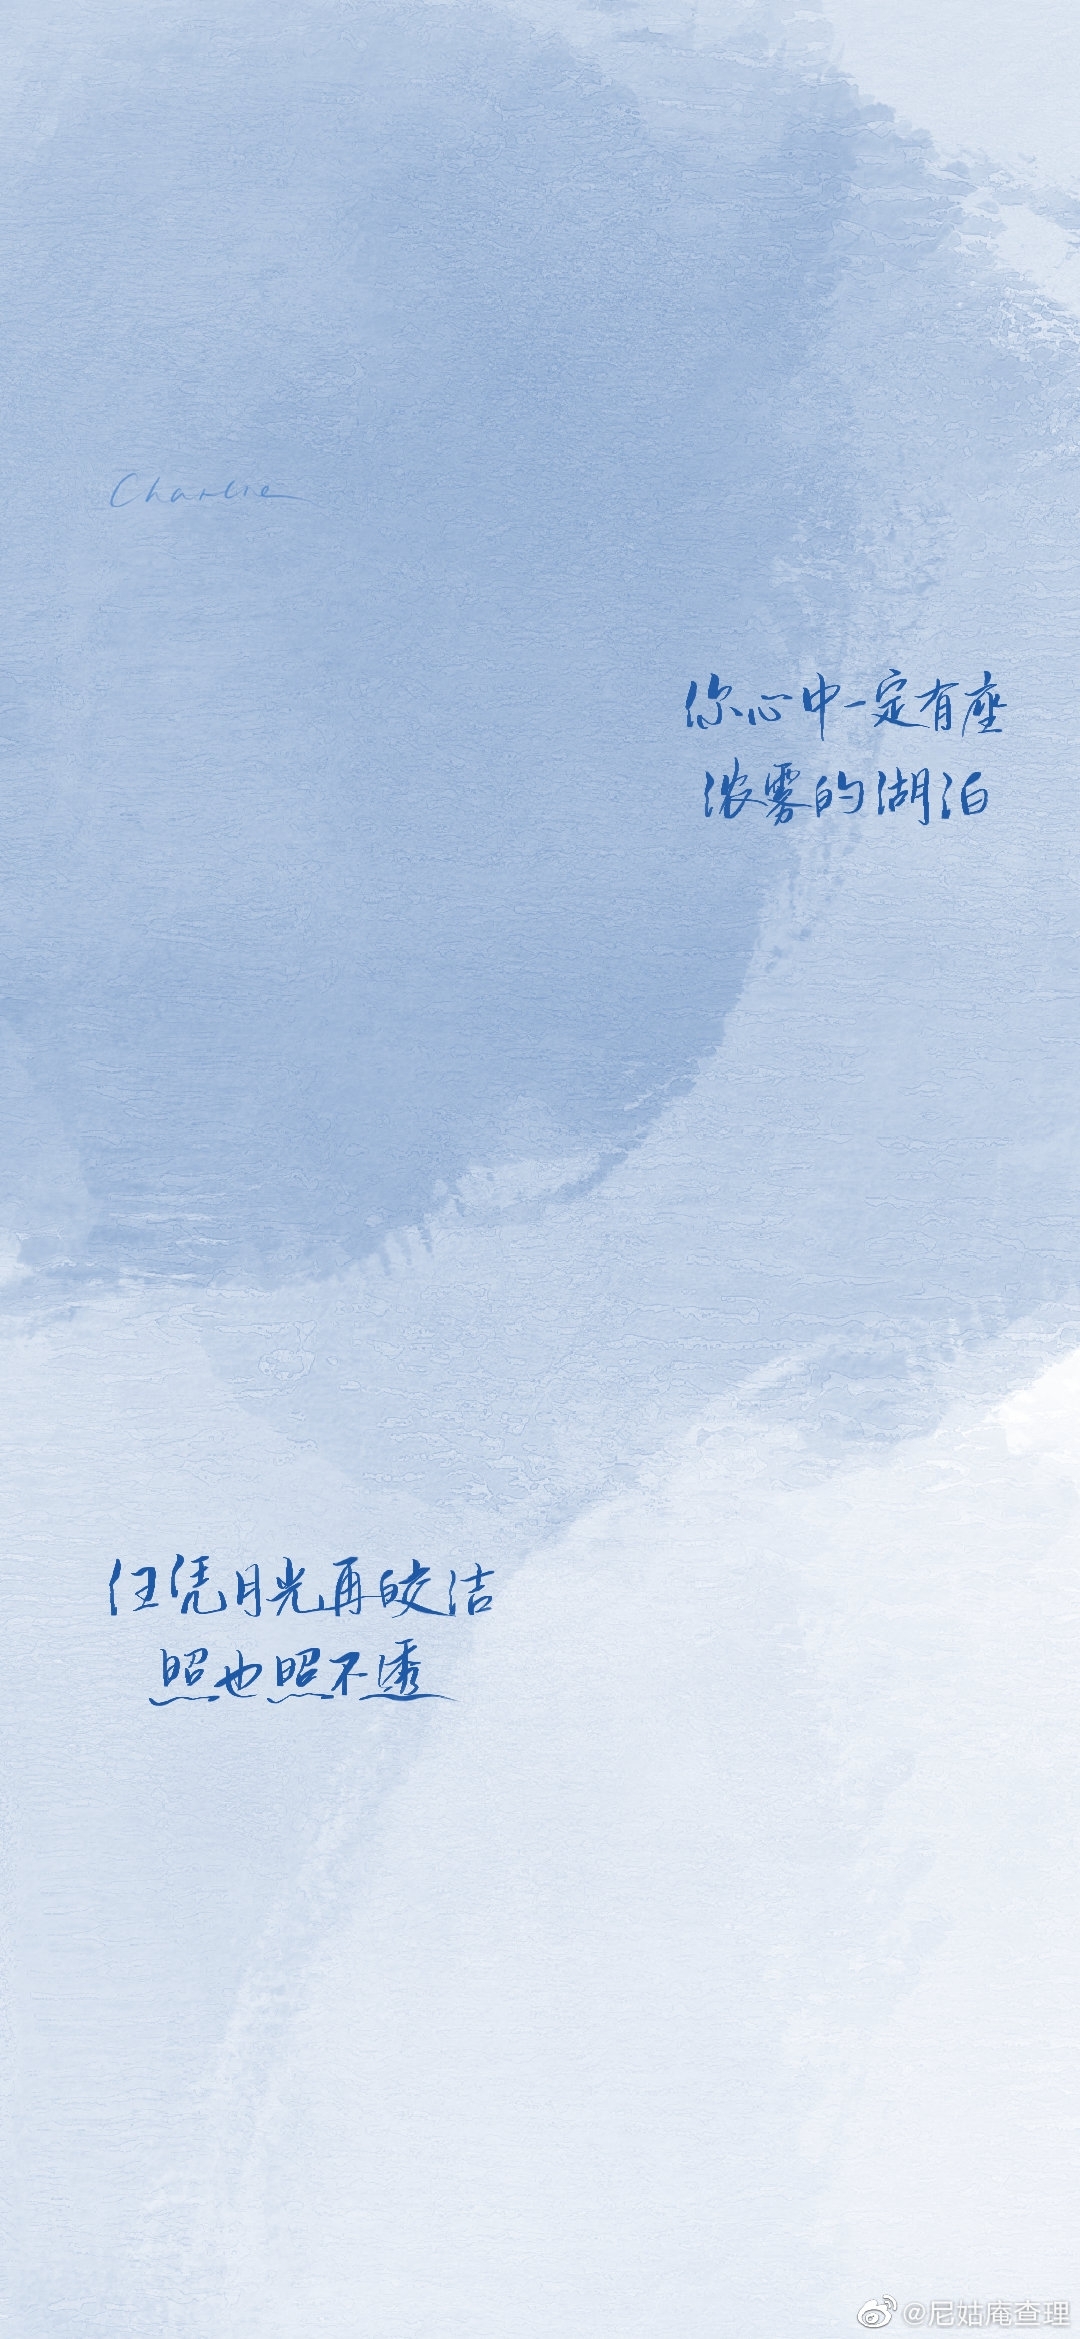 Charlie
你心中一定有座
浓雾的湖泊
任凭月光再皎洁
照也照不透
@尼姑庵查理